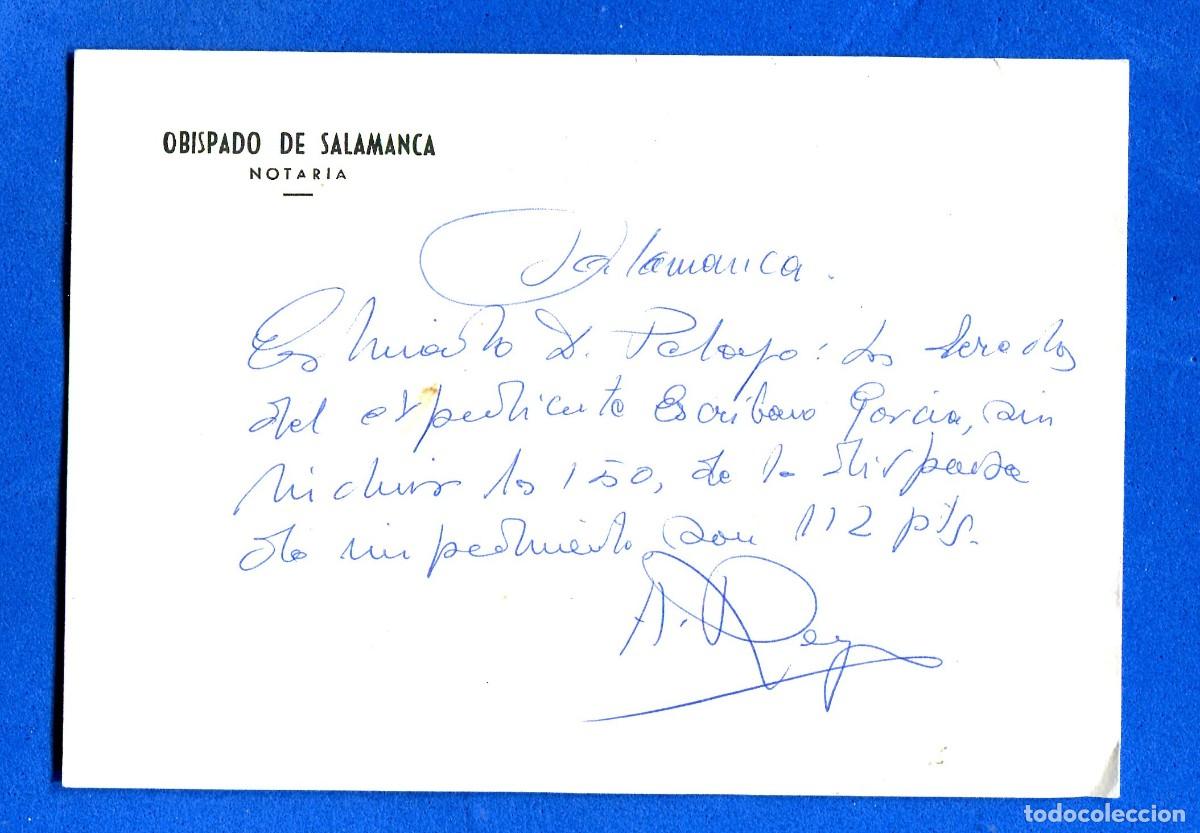 OBISPADO DE SALAMANCA
NOTARIA
Salamanca.
Estimado D. Pelayo: Los derechos
del expediente Escribano García, sin
incluir las 150, de la dispensa
de impedimento son 112 pts.
A. Rey
todocoleccion